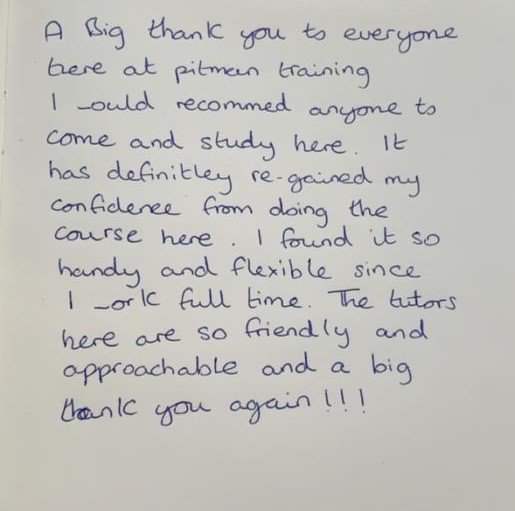 A Big thank you to everyone
here at pitman training
I _ould recommed anyone to
come and study here. It
has definitley re-gained my
confidence from doing the
course here. I found it so
handy and flexible since
I _ork full time. The tutors
here are so friendly and
approachable and a big
thank you again!!!